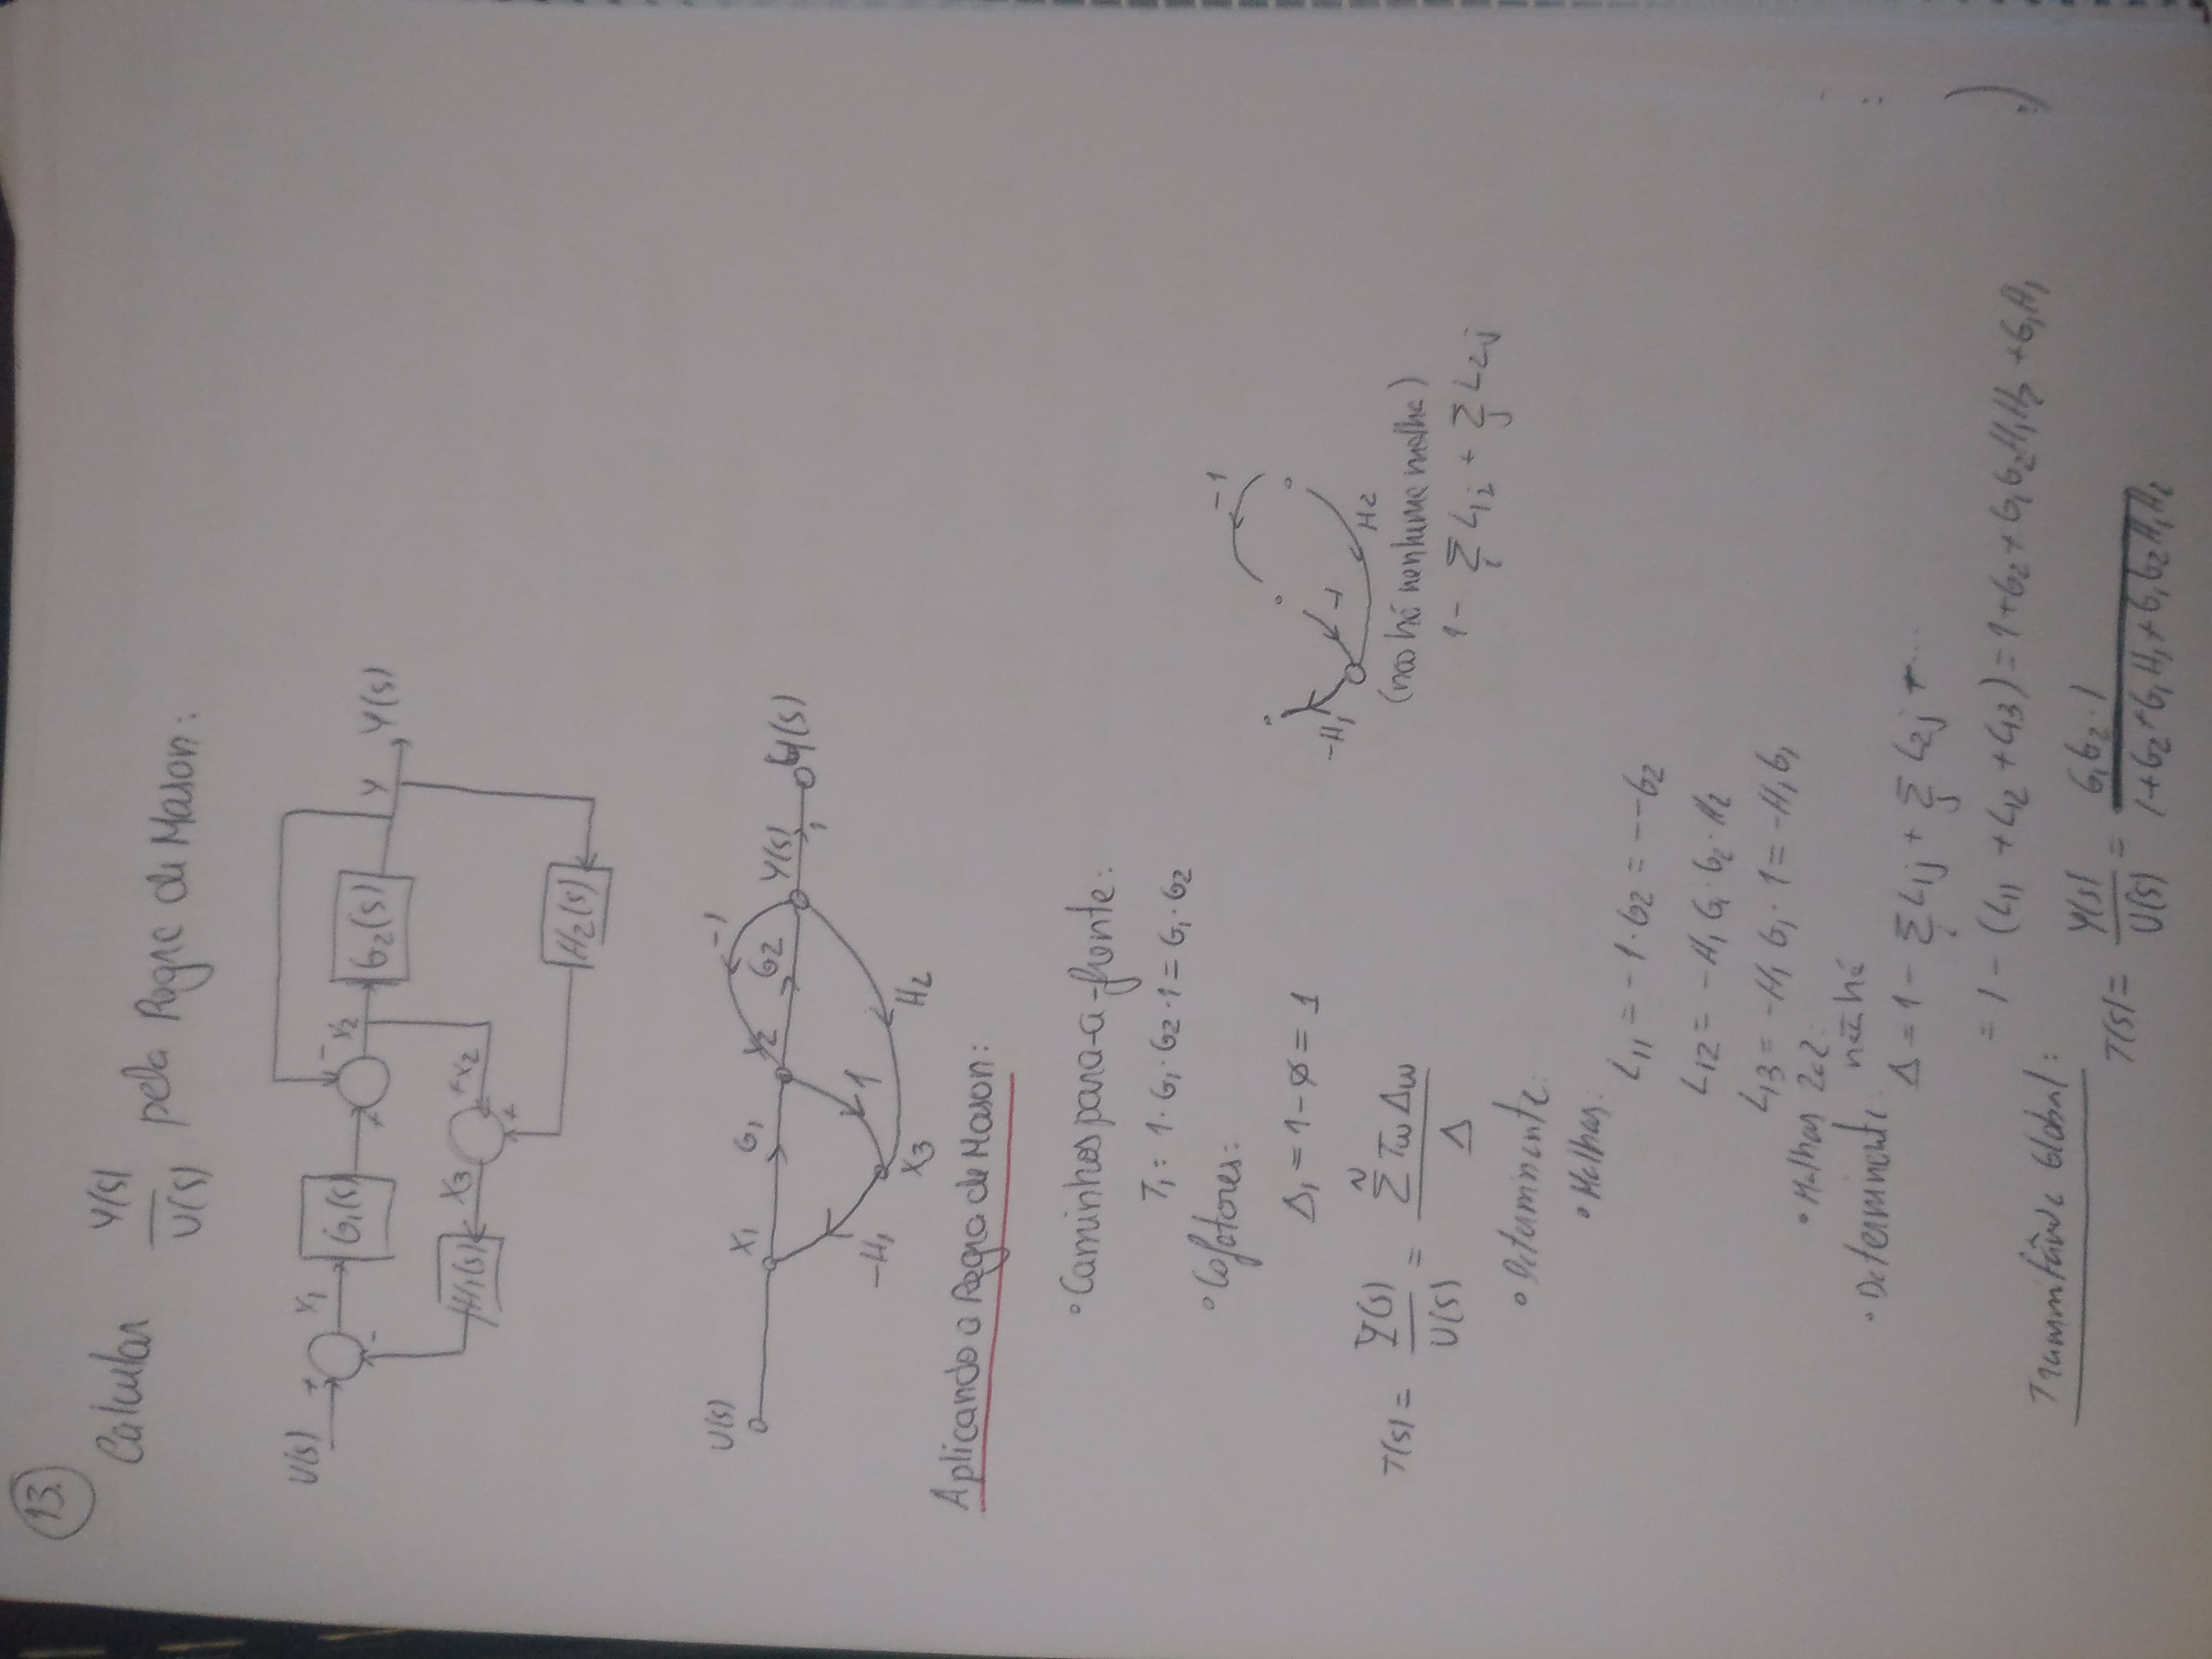 13.
Calcular Y(s)/U(s) pela Regra de Mason:
U(s) + X₁ G₁(s) - X₂ G₂(s) Y Y(s)
- +
H₁(s) X₃ +X₂
+
H₂(s)
-1
U(s) X₁ G₁ X₂ G₂ Y(s) Y(s)
1
-H₁ 1
X₃ H₂
Aplicando a Regra de Mason:
• Caminhos para-a-frente:
T₁ = 1·G₁·G₂·1 = G₁·G₂
• Cofatores:
-1
Δ₁ = 1-∅ = 1
-H₁ -1 H₂
(não há nenhuma malha)
T(s) = Y(s)/U(s) = N Σ Tω Δω / Δ
1 - Σᵢ L₁ᵢ + Σⱼ L₂ⱼ
• Determinante:
• Malhas:
L₁₁ = -1·G₂ = --G₂
L₁₂ = -H₁ G₁·G₂·H₂
L₁₃ = -H₁ G₁·1 = -H₁G₁
• Malhas 2a2:
não há
• Determinante
Δ = 1 - Σᵢ L₁ⱼ + Σⱼ L₂ⱼ + ...
= 1 - (L₁₁ + L₁₂ + L₁₃) = 1+G₂+G₁G₂H₁H₂ +G₁H₁
Global:
T(s) = Y(s)/U(s) = G₁G₂·1 / 1+G₂+G₁H₁+G₁G₂H₁H₂